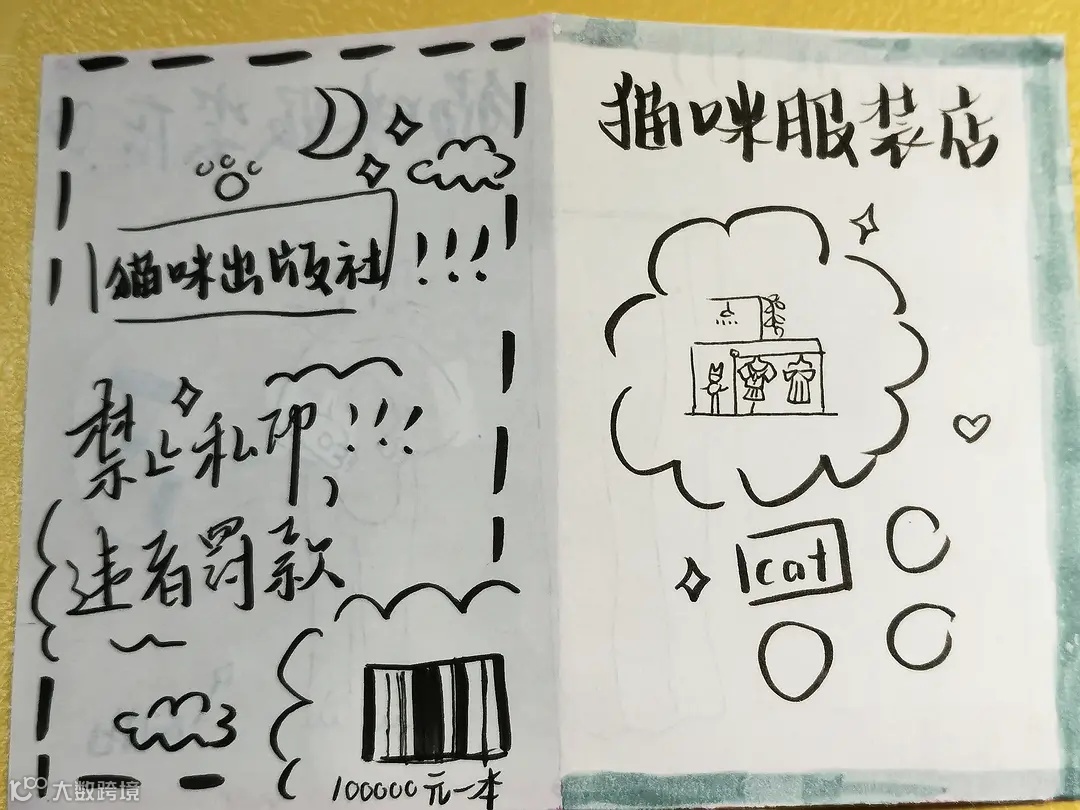 猫咪出版社!!!
禁止私印!!!,
违者罚款
100000元一本
猫咪服装店
cat
大数跨境